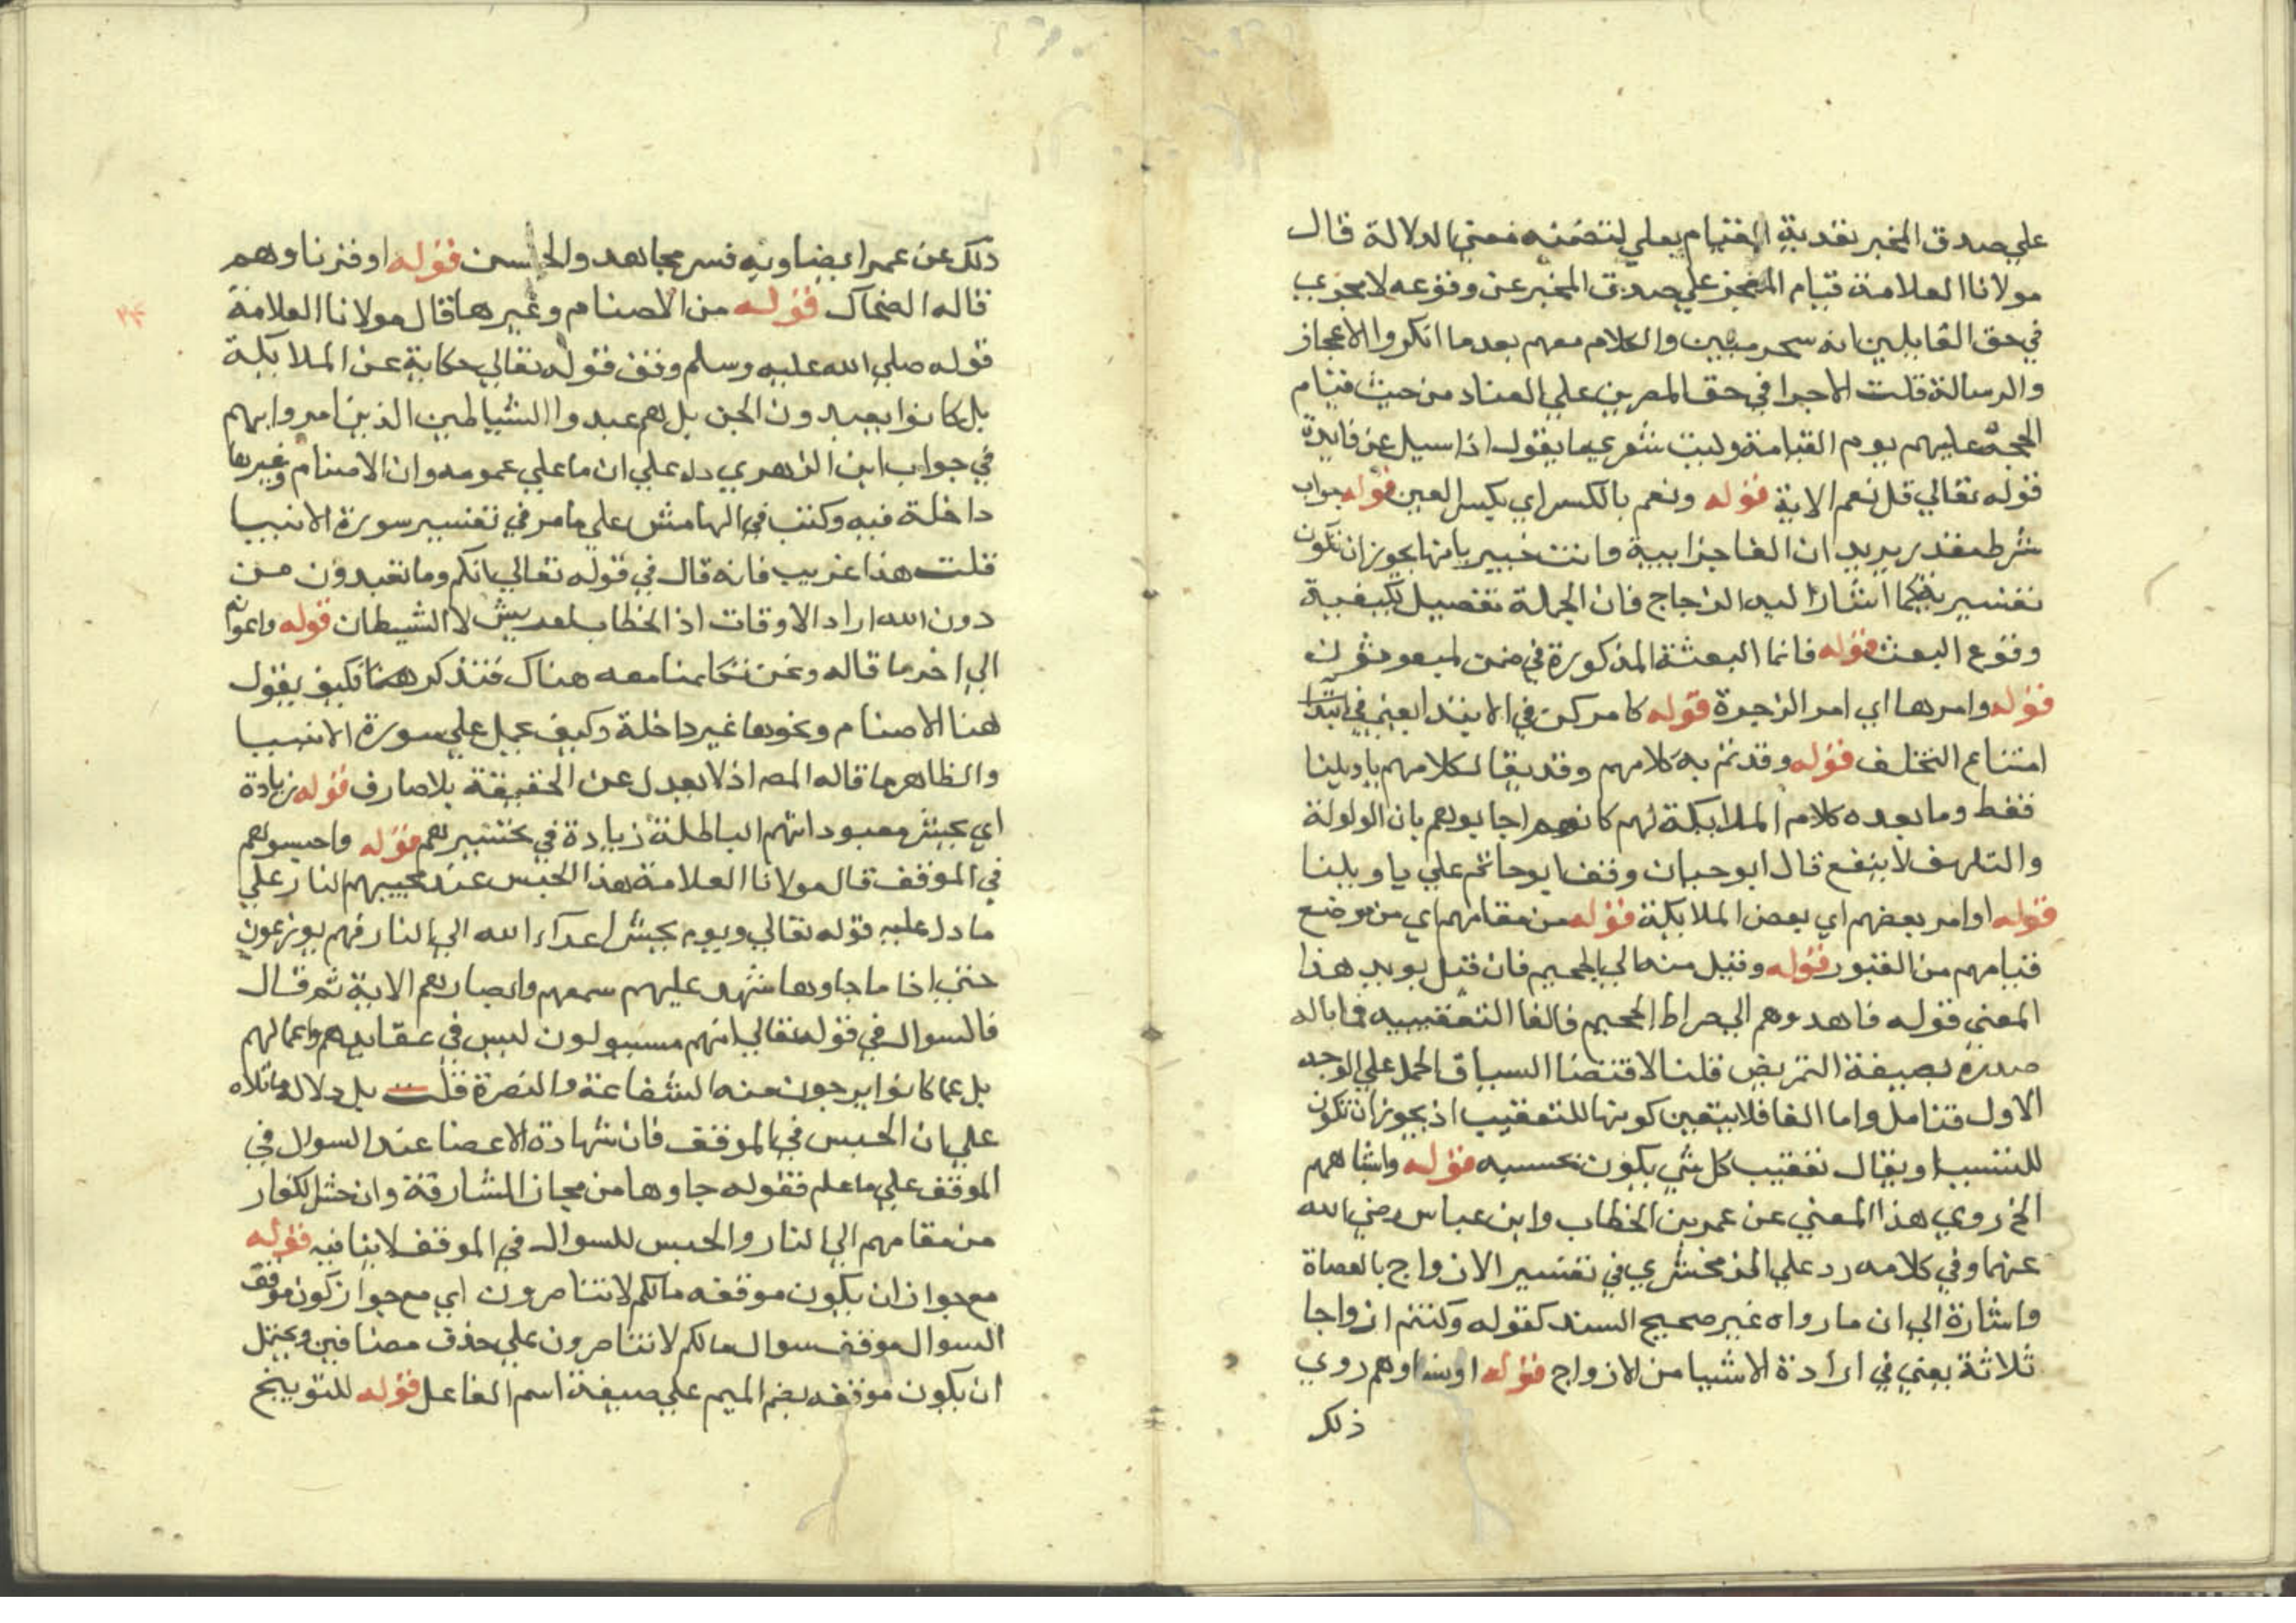 علي صدق المخبر بقدية القيام بعلي لتضمنه معني الدلالة قال
مولانا العلامة قيام المعجز علي صدق المخبر عن وقوعه لا يجزي
في حق القايلين انه سحر مبين والكلام معهم بعدما انكروا الاعجاز
والرسالة قلت الاجرا في حق المصرين علي العناد من حيث قيام
الحجة عليهم يوم القيامة وليت شعري ما يقول اذا سيل عن فايدة
قوله تعالي قل نعم الاية قوله ونعم بالكسر اي بكسر العين قوله جواب
شرط مقدر يريد ان الفا جزايية وانت خبير بانها يجوز ان تكون
تفسيرية كما اشار اليه الزجاج فان الجملة تفصيل لكيفية
وقوع البعث قوله فانما البعثة المذكورة في ضمن لمبعوثون
قوله وامرها اي امر الزجرة قوله كامر كن في الابتدا يعني في ابتدا
امتناع التخلف قوله وقد تم به كلامهم وقد يقال كلامهم ياويلنا
فقط وما بعده كلام الملايكة لهم كانهم اجابوهم بان الولولة
والتلهف لا ينفع قال ابو حيان وقف ابو حاتم علي يا ويلنا
قوله او امر بعضهم اي بعض الملايكة قوله من مقامهم اي من موضع
قيامهم من القبور قوله وقيل منه الي الجحيم فان قيل يويد هذا
المعني قوله فاهدوهم الي صراط الجحيم فالفا التعقيبيه فما باله
صدره بصيغة التمريض قلنا لاقتضا السياق الحمل علي الوجه
الاول فتامل واما الفا فلا يتعين كونها للتعقيب اذ يجوز ان تكون
للتسبب او يقال تعقيب كل شي يكون بحسبه قوله واشباههم
الخ روي هذا المعني عن عمر بن الخطاب وابن عباس رضي الله
عنهما وفي كلامه رد علي الزمخشري في تفسير الازواج بالعصاة
واشارة الي ان ما رواه غير صحيح السند كقوله وكنتم ازواجا
ثلاثة يعني في ارادة الاشبا من الازواج قوله او نساوهم روي
ذلك
ذلك عن عمر ايضا وبه فسر مجاهد والحسن قوله او قرناوهم
قاله الضحاك قوله من الاصنام وغيرها قال مولانا العلامة
قوله صلي الله عليه وسلم وفق قوله تعالي حكاية عن الملايكة
بل كانوا يعبدون الجن بل هم عبدوا الشياطين الذين امروا بهم
في جواب ابن الزهري دل علي ان ما علي عمومه وان الاصنام وغيرها
داخلة فيه وكتب في الهامش علي ما مر في تفسير سورة الانبيا
قلت هذا غريب فانه قال في قوله تعالي انكم وما تعبدون من
دون الله اراد الاوقات اذ الخطاب لقريش لا الشيطان قوله واعوانه
الي اخر ما قاله ونحن تكلمنا معه هناك فتذكر هنا فكيف يقول
هنا الاصنام ونحوها غير داخلة وكيف يحمل علي سورة الانبيا
والظاهر ما قاله المص اذ لا يعدل عن الحقيقة بلا صارف قوله زيادة
اي يحشر معبوداتهم الباطلة زيادة في تحسيرهم قوله واحبسوهم
في الموقف قال مولانا العلامة هذا الحبس عند مجيبهم النار علي
ما دل عليه قوله تعالي ويوم يحشر اعداء الله الي النار فهم يوزعون
حتي اذا ما جاوها شهد عليهم سمعهم وابصارهم الاية ثم قال
فالسوال في قوله تعالي انهم مسيولون ليس في عقايدهم واعمالهم
بل عما كانوا يرجون منه الشفاعة والنصرة قلت بل دلالة ما تلاه
علي ان الحبس في الموقف فان شهادة الاعضا عند السوال في
الموقف علي ما علم فقوله جاوها من مجاز المشارفة وان حشر الكفار
من مقامهم الي النار والحبس للسوال في الموقف لا ينافيه قوله
مع جواز ان يكون موقفه مالكم لا تناصرون اي مع جواز كون موقف
السوال موقف سوال مالكم لا تناصرون علي حذف مضافين ويحتمل
ان يكون موقفه بضم الميم علي صيغة اسم الفاعل قوله للتوبيخ